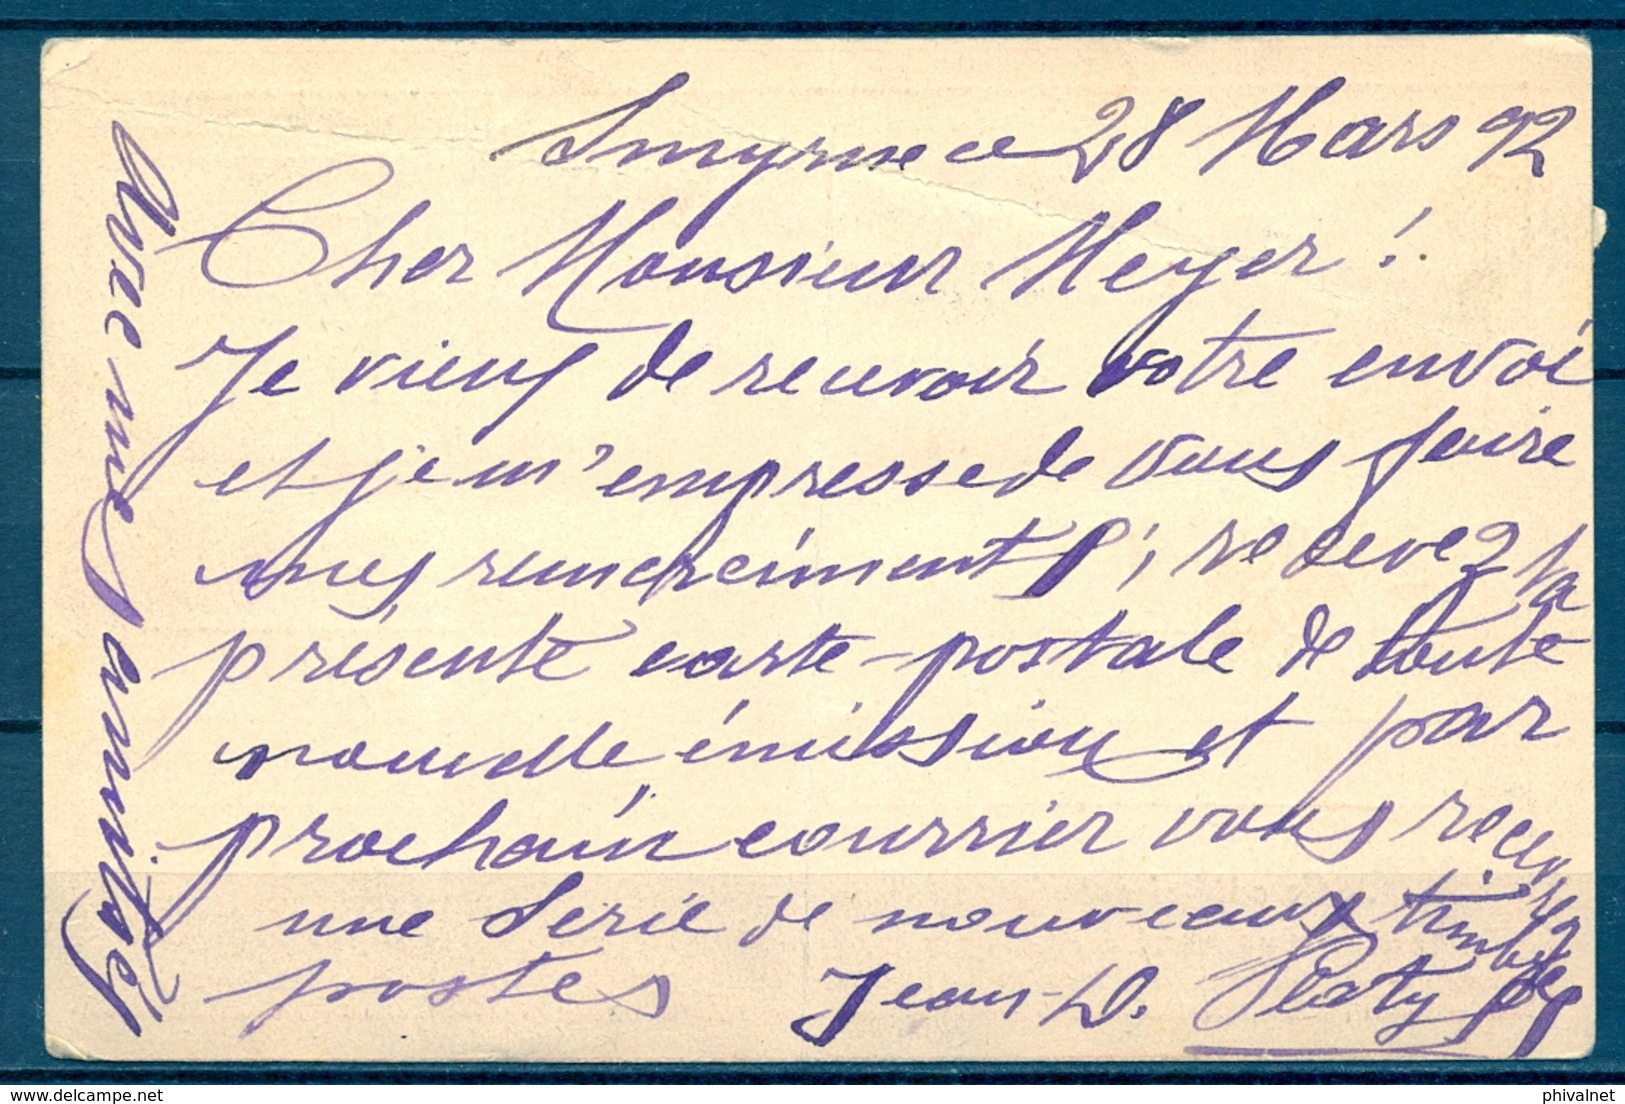 Smyrne ce 28 Mars 92
Cher Monsieur Meyer!
Je viens de recevoir votre envoi
et je m'empresse de vous faire
mes remerciments; recevez la
présente carte-postale de toute
nouvelle émission et par
prochain courrier vous recevrez
une Série de nouveaux timbres
postes Jean-D.
Avec mes amitiés
phivalnet www.delcampe.net